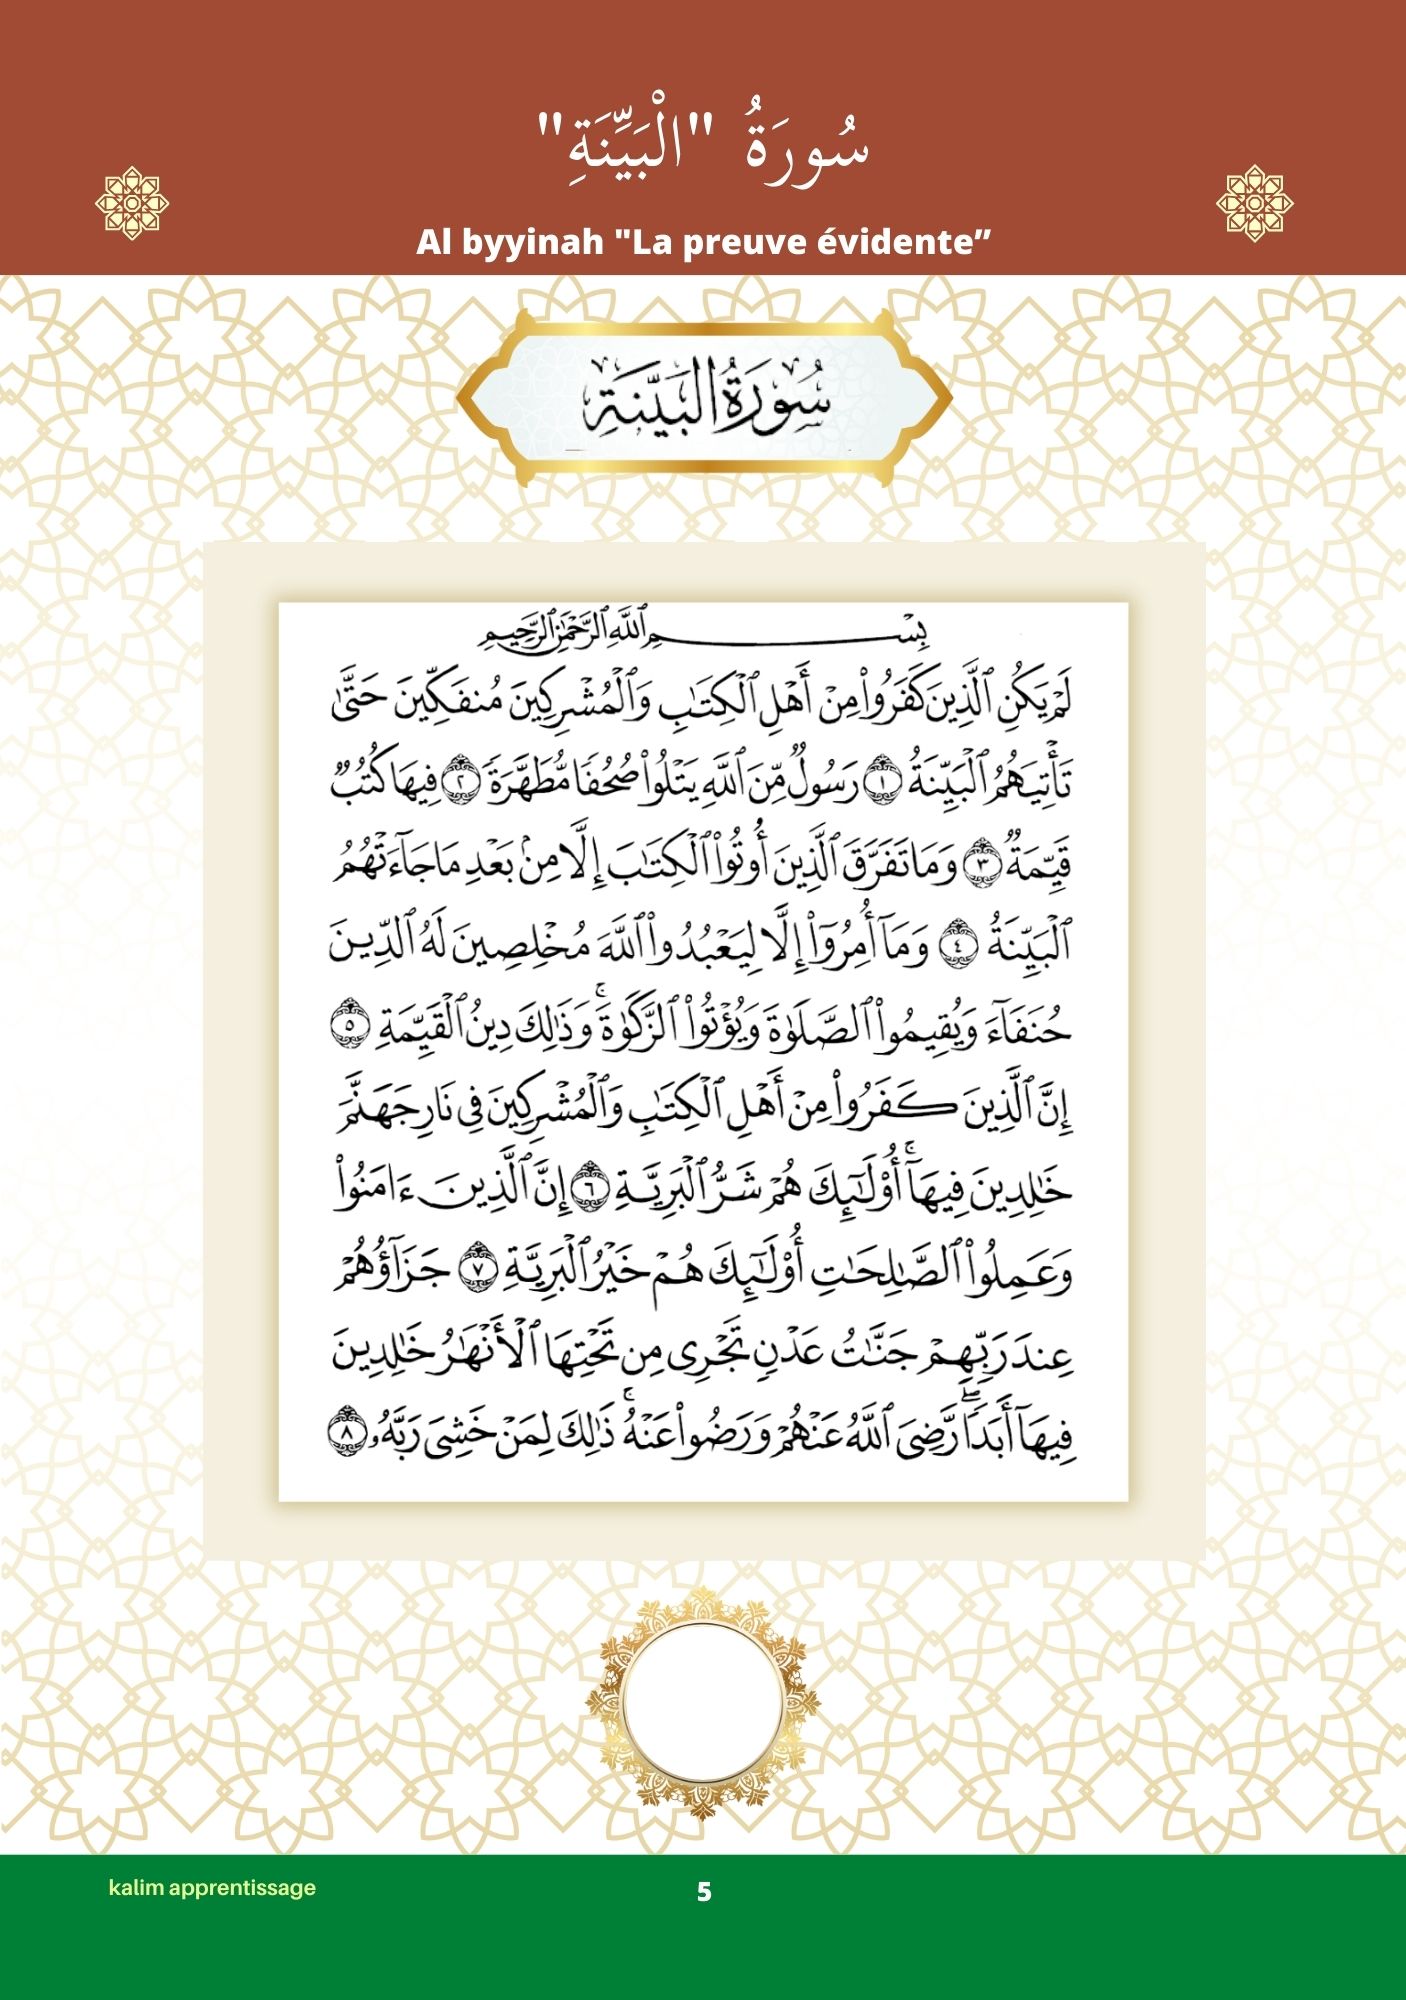 سُورَةُ "الْبَيِّنَةِ"
Al byyinah "La preuve évidente”
سُورَةُ البَيِّنَةِ
بِسْمِ ٱللَّهِ ٱلرَّحْمَٰنِ ٱلرَّحِيمِ
لَمْ يَكُنِ ٱلَّذِينَ كَفَرُوا۟ مِنْ أَهْلِ ٱلْكِتَٰبِ وَٱلْمُشْرِكِينَ مُنفَكِّينَ حَتَّىٰ
تَأْتِيَهُمُ ٱلْبَيِّنَةُ ١ رَسُولٌ مِّنَ ٱللَّهِ يَتْلُوا۟ صُحُفًا مُّطَهَّرَةً ٢ فِيهَا كُتُبٌ
قَيِّمَةٌ ٣ وَمَا تَفَرَّقَ ٱلَّذِينَ أُوتُوا۟ ٱلْكِتَٰبَ إِلَّا مِنۢ بَعْدِ مَا جَآءَتْهُمُ
ٱلْبَيِّنَةُ ٤ وَمَآ أُمِرُوٓا۟ إِلَّا لِيَعْبُدُوا۟ ٱللَّهَ مُخْلِصِينَ لَهُ ٱلدِّينَ
حُنَفَآءَ وَيُقِيمُوا۟ ٱلصَّلَوٰةَ وَيُؤْتُوا۟ ٱلزَّكَوٰةَ ۚ وَذَٰلِكَ دِينُ ٱلْقَيِّمَةِ ٥
إِنَّ ٱلَّذِينَ كَفَرُوا۟ مِنْ أَهْلِ ٱلْكِتَٰبِ وَٱلْمُشْرِكِينَ فِى نَارِ جَهَنَّمَ
خَٰلِدِينَ فِيهَآ ۚ أُو۟لَٰٓئِكَ هُمْ شَرُّ ٱلْبَرِيَّةِ ٦ إِنَّ ٱلَّذِينَ ءَامَنُوا۟
وَعَمِلُوا۟ ٱلصَّٰلِحَٰتِ أُو۟لَٰٓئِكَ هُمْ خَيْرُ ٱلْبَرِيَّةِ ٧ جَزَآؤُهُمْ
عِندَ رَبِّهِمْ جَنَّٰتُ عَدْنٍ تَجْرِى مِن تَحْتِهَا ٱلْأَنْهَٰرُ خَٰلِدِينَ
فِيهَآ أَبَدًا ۖ رَّضِىَ ٱللَّهُ عَنْهُمْ وَرَضُوا۟ عَنْهُ ۚ ذَٰلِكَ لِمَنْ خَشِىَ رَبَّهُۥ ٨
kalim apprentissage
5